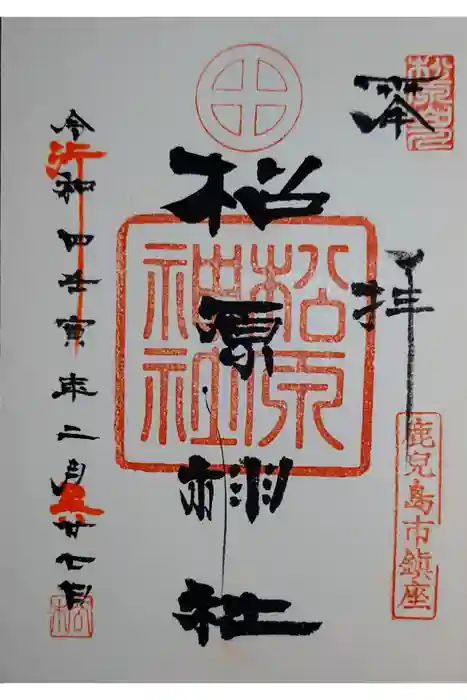 奉拝
鹿兒島市鎮座
松原神社
松原神社
令和四壬寅年二月廿七日